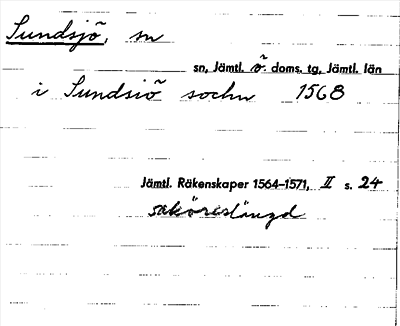 Sundsjö, sn
sn, Jämtl. ö. doms. tg, Jämtl. län
i Sundsiõ sochn 1568
Jämtl. Räkenskaper 1564–1571, II s. 24
saköreslängd